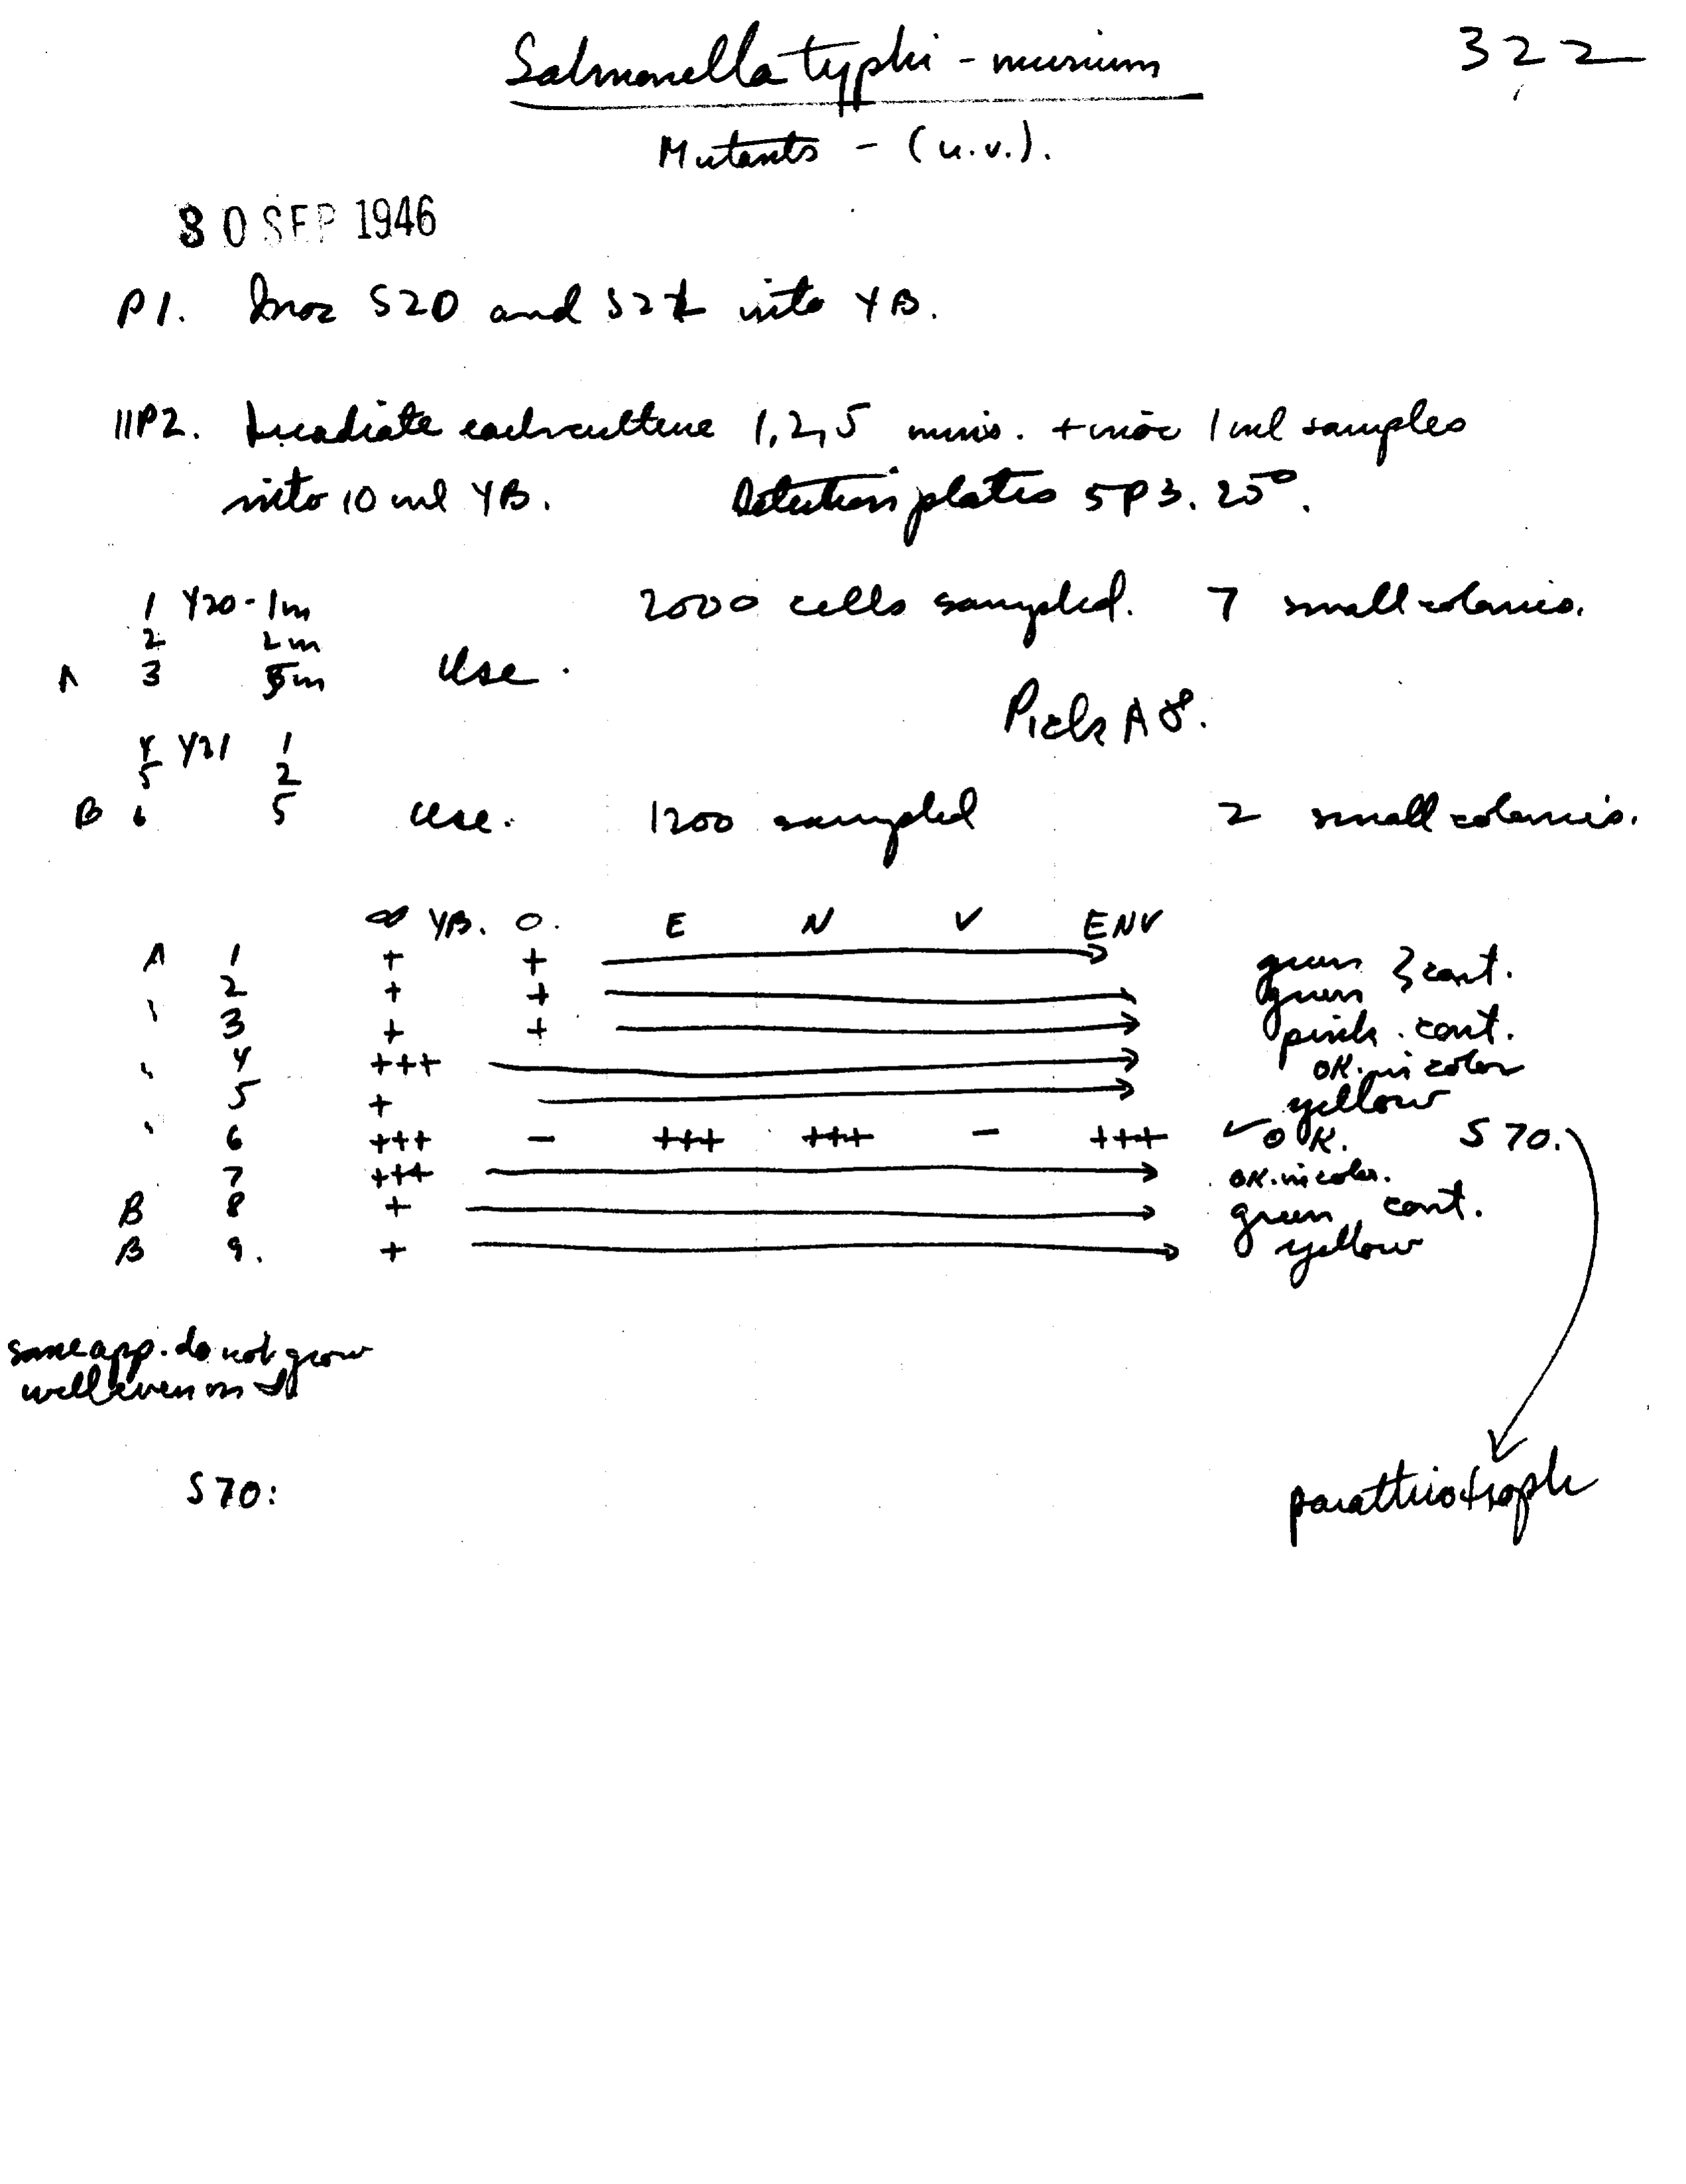 Salmonella typhi-murium 322
Mutants - (u.v.).
30 SEP 1946
P1. Inoc S20 and S21 into YB.
11P2. Irradiate each culture 1,2,5 mins. + inoc 1 ml samples
into 10 ml YB. Detection plates 5P3. 25°.
1 Y20-1m 2000 cells sampled. 7 small colonies.
2 2m
A 3 5m Use.
Pick A 8.
4 Y21 1
5 2
B 6 5 Use. 1200 sampled 2 small colonies.
∞ YB. O. E N V ENV
A 1 + + → green } cont.
2 + + → green
3 + + → pink. cont.
4 +++ → OK. in color
5 + → yellow
6 +++ - +++ +++ - +++ ✓ OK. S70.
7 +++ → OK. in color.
B 8 + → green cont.
B 9. + → yellow
some app. do not grow
well even on
S70: parathiotroph